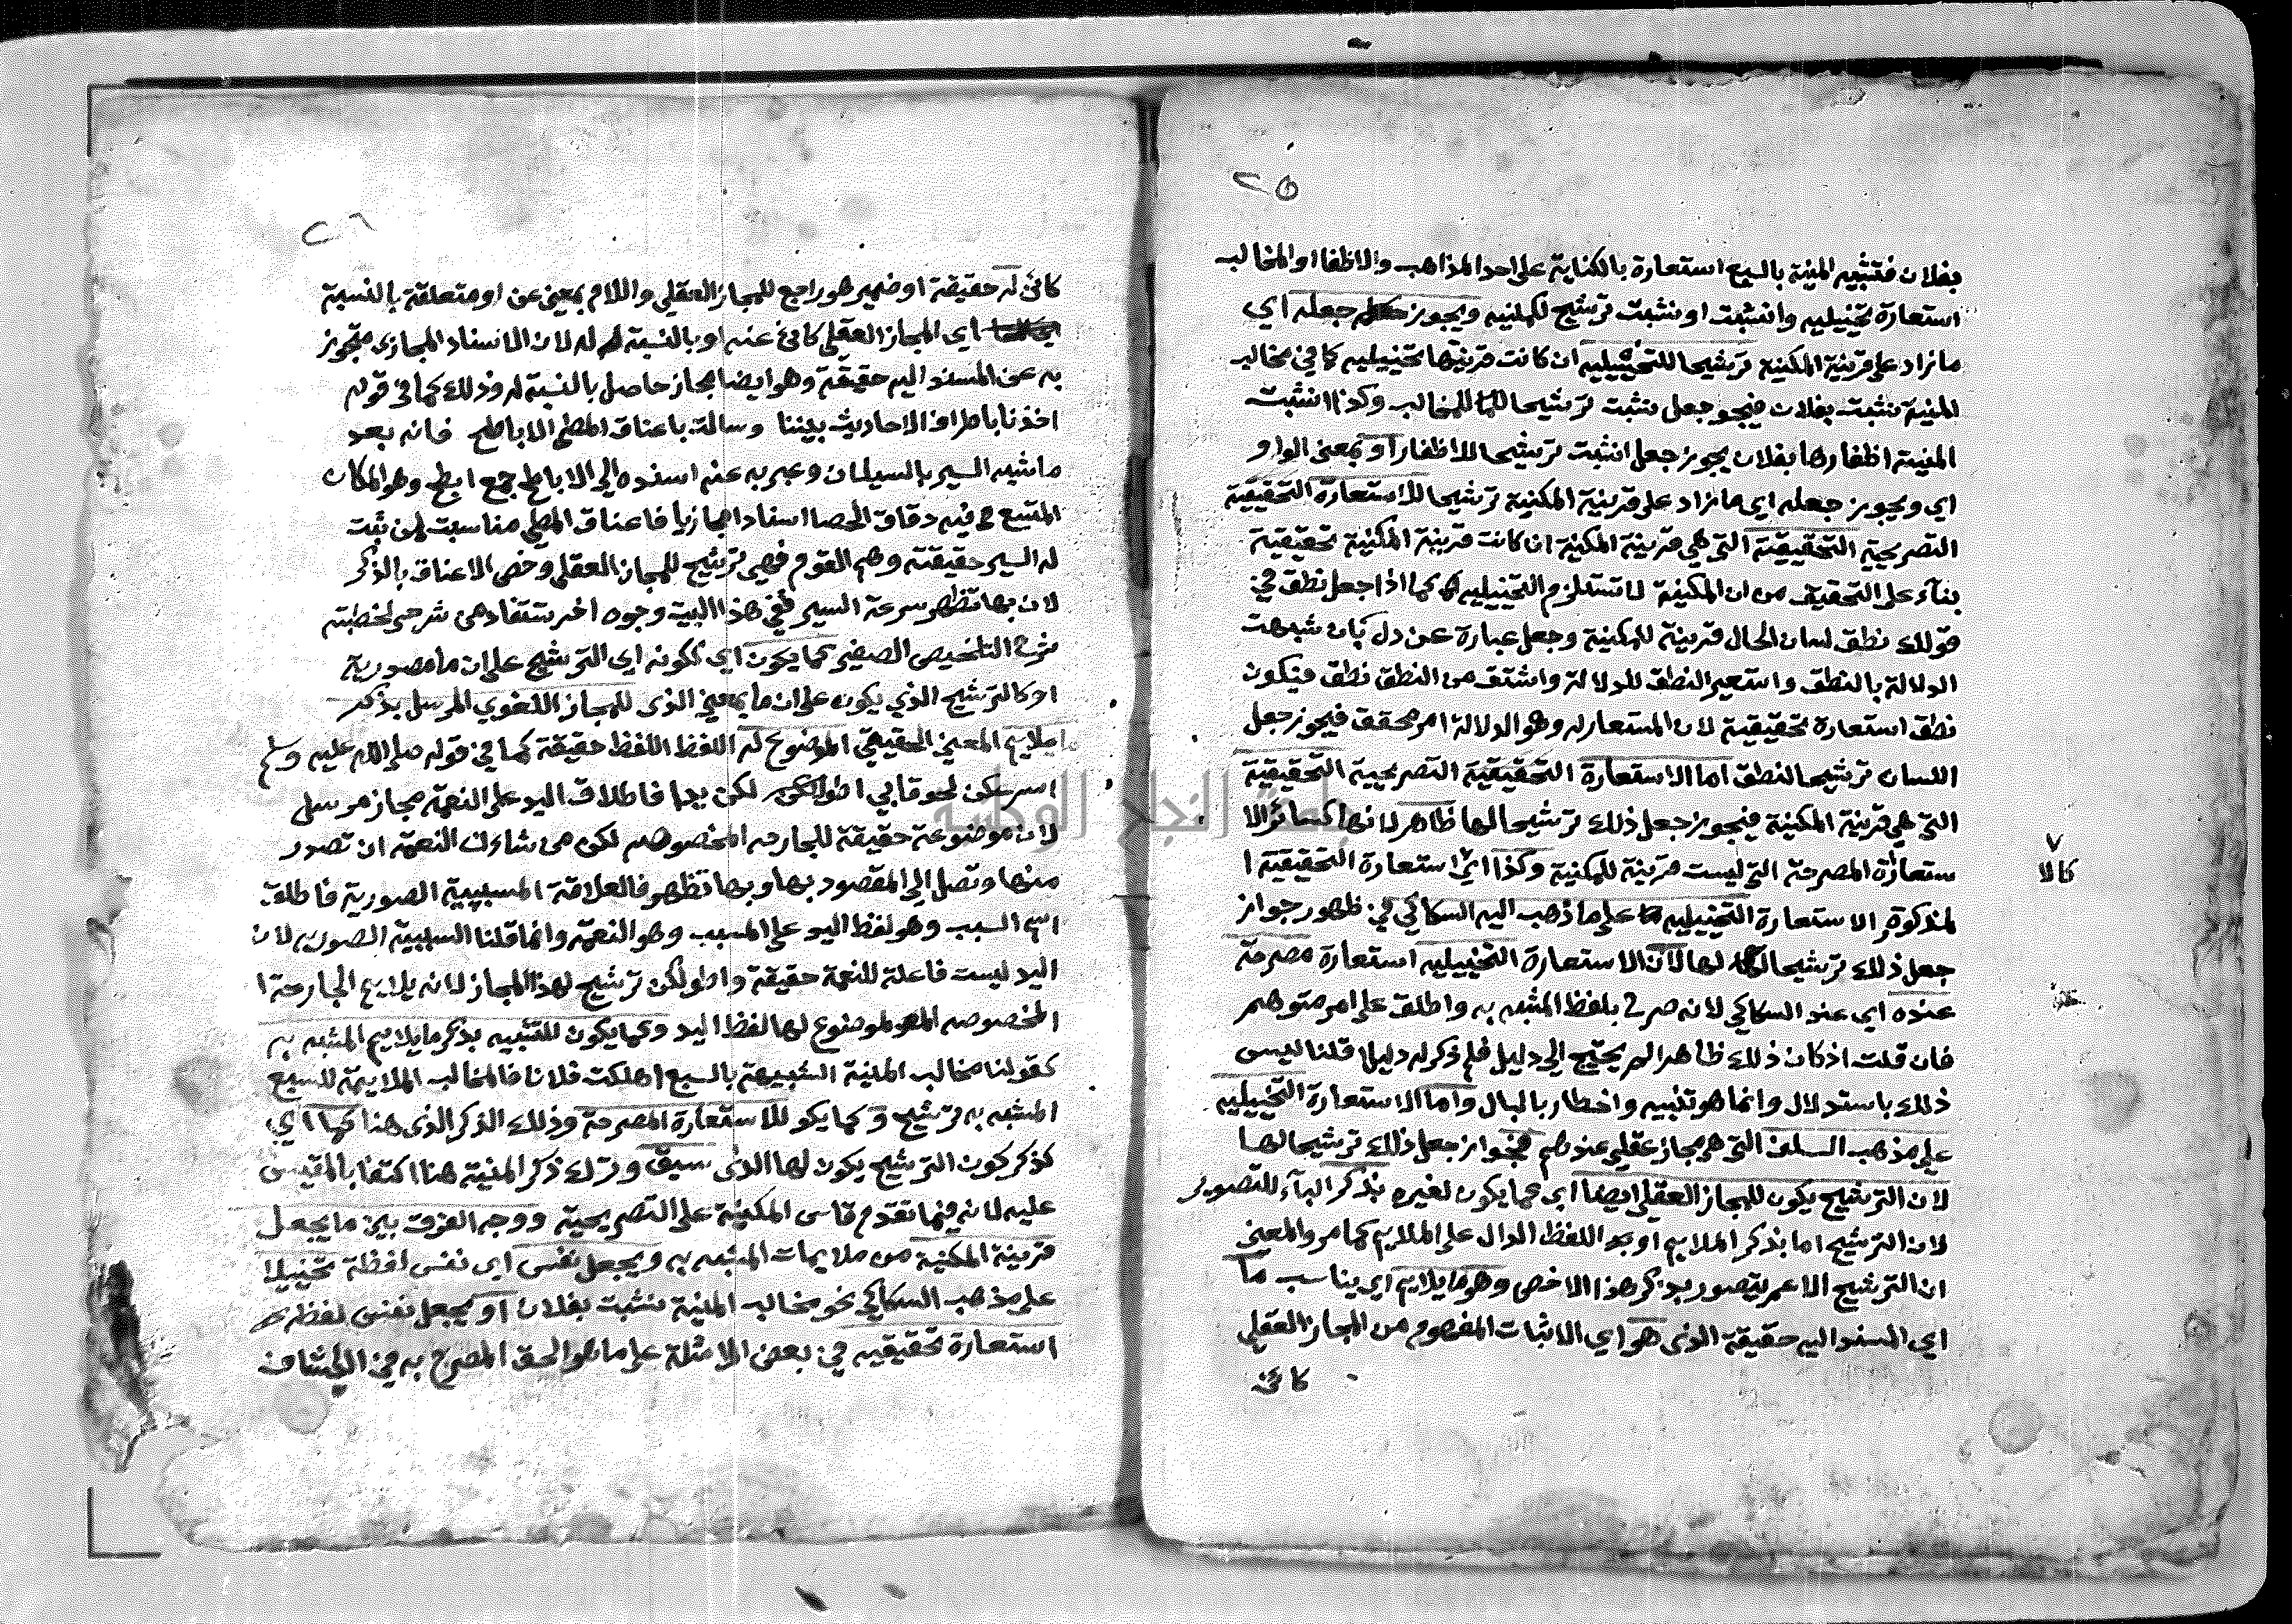 ٢٥
بفلان فتشبيه المنية بالسبع استعارة بالكناية على احد المذاهب والاظفار او المخالب
استعارة تخييليه وانشبت او نشبت ترشيح لمكنيه ويجوز جعله اي
ما زاد على قرينة المكنية ترشيحا للتخييليه ان كانت قرينتها تخييليه كما في مخالب
المنية نشبت بفلان فيجوز جعل نشبت ترشيحا للمخالب وكذا انشبت
المنية اظفارها بفلان يجوز جعل انشبت ترشيحا للاظفار او بمعنى الواو
اي ويجوز جعله اي ما زاد على قرينة المكنية ترشيحا للاستعارة التحقيقية
التصريحية التحقيقية التي هي قرينة المكنية ان كانت قرينة المكنية تحقيقية
بناء على التحقيق من ان المكنية لا تستلزم التخييليه كما اذا جعل نطق في
قولك نطق لسان الحال قرينة للمكنية وجعل عبارة عن دل بان شبهت
الدلالة بالنطق واستعير النطق للدلالة واشتق من النطق نطق فيكون
نطق استعارة تحقيقية لان المستعار له وهو الدلالة امر محقق فيجوز جعل
اللسان ترشيحا لنطق اما الاستعارة التحقيقية التصريحية التحقيقية
التي هي قرينة المكنية فيجوز جعل ذلك ترشيحا لها ظاهر لانها كسائر الا
ستعارة المصرحة التي ليست قرينة للمكنية وكذا اي استعارة التحقيقية ا
كالا
لمذكورة الاستعارة التخييليه على ما ذهب اليه السكاكي في ظهور جواز
جعل ذلك ترشيحا لها لان الاستعارة التخييليه استعارة مصرحة
عنده اي عند السكاكي لانه صرح بلفظ المشبه به واطلق على امر متوهم
فان قلت اذ كان ذلك ظاهرا لم يحتج الى دليل فلم ذكر له دليلا قلنا ليس
ذلك باستدلال وانما هو تنبيه واخطار بالبال واما الاستعارة التخييليه
على مذهب السلف التي هي مجاز عقلي عندهم فجواز جعل ذلك ترشيحا لها
لان الترشيح يكون للمجاز العقلي ايضا اي كما يكون لغيره بذكر الباء للتصوير
لان الترشيح اما بذكر الملايم او اللفظ الدال على الملايم كما مر والمعنى
ان الترشيح الاعم يتصور بذكر هذا الاخص وهو ما يلايم اي يناسب ما
اي المسند اليه حقيقة الذى هو اي الاثبات المفهوم من المجاز العقلي
كائن
٢٦
كائن له حقيقة او ضمير هو راجع للمجاز العقلي واللام بمعنى عن او متعلقة بالنسبة
اي المجاز العقلي كائن عنه او بالنسبة له لان الاسناد المجازى متجوز
به عن المسند اليه حقيقة وهو ايضا مجاز حاصل بالنسبة له وذلك كما في قوله
اخذنا باطراف الاحاديث بيننا وسالت باعناق المطي الاباطح فانه بعد
ما شبه السير بالسيلان وعبر به عنه اسنده الى الاباطح جمع ابطح وهو المكان
المتسع فيه دقاق الحصا اسنادا مجازيا فاعناق المطي مناسبت لمن ثبت
له السير حقيقة وهم القوم فهي ترشيح للمجاز العقلي وخص الاعناق بالذكر
لان بها تظهر سرعة السير ففي هذا البيت وجوه اخر ستفادهى شرحي لخطبته
شرح التلخيص الصغير كما يكون اي لكونه اى الترشيح على ان ما مصدرية
او كالترشيح الذي يكون على ان ما بمعنى الذى للمجاز اللغوي المرسل بذكر
ملايم المعنى الحقيقي الموضوع له اللفظ اللفظ حقيقة كما في قوله صلى الله عليه وسلم
اسرعكن لحوقا بي اطولكن لكن يدا فاطلاق اليد على النعمة مجاز مرسل
لان موضوعة حقيقة للجارحه المخصوصه لكن من شان النعمة ان تصدر
منها وتصل الى المقصود بها وبها تظهر فالعلاقة المسببية الصورية فاطلق
اسم السبب وهو لفظ اليد على المسبب وهو النعمة وانما قلنا السببية الصورية لان
اليد ليست فاعلة للنعمة حقيقة واطولكن ترشيح لهذا المجاز لانه يلايم الجارحة ا
المخصوصه الموضوع لها لفظ اليد وكما يكون للتشبيه بذكر ما يلايم المشبه به
كقولنا مخالب المنية الشبيهة بالسبع اهلكت فلانا فالمخالب الملايمة للسبع
المشبه به ترشيح وكما يكو للاستعارة المصرحة وذلك الذكر الذى هنا كما اي
كذكر كون الترشيح يكون لها الذى سبق وترك ذكر المنية هنا اكتفا بالمقيس
عليه لانه فيما تقدم قاس المكنية على التصريحية ووجه الفرق بين ما يجعل
قرينة المكنية من ملايمات المشبه به ويجعل نفس اي نفس لفظة تخييلا
على مذهب السكاكي نحو مخالب المنية نشبت بفلان او يجعل نفس لفظه
استعارة تحقيقيه في بعض الامثلة على ما هو الحق المصرح به في الكشاف
جامعة النجاح الوطنية